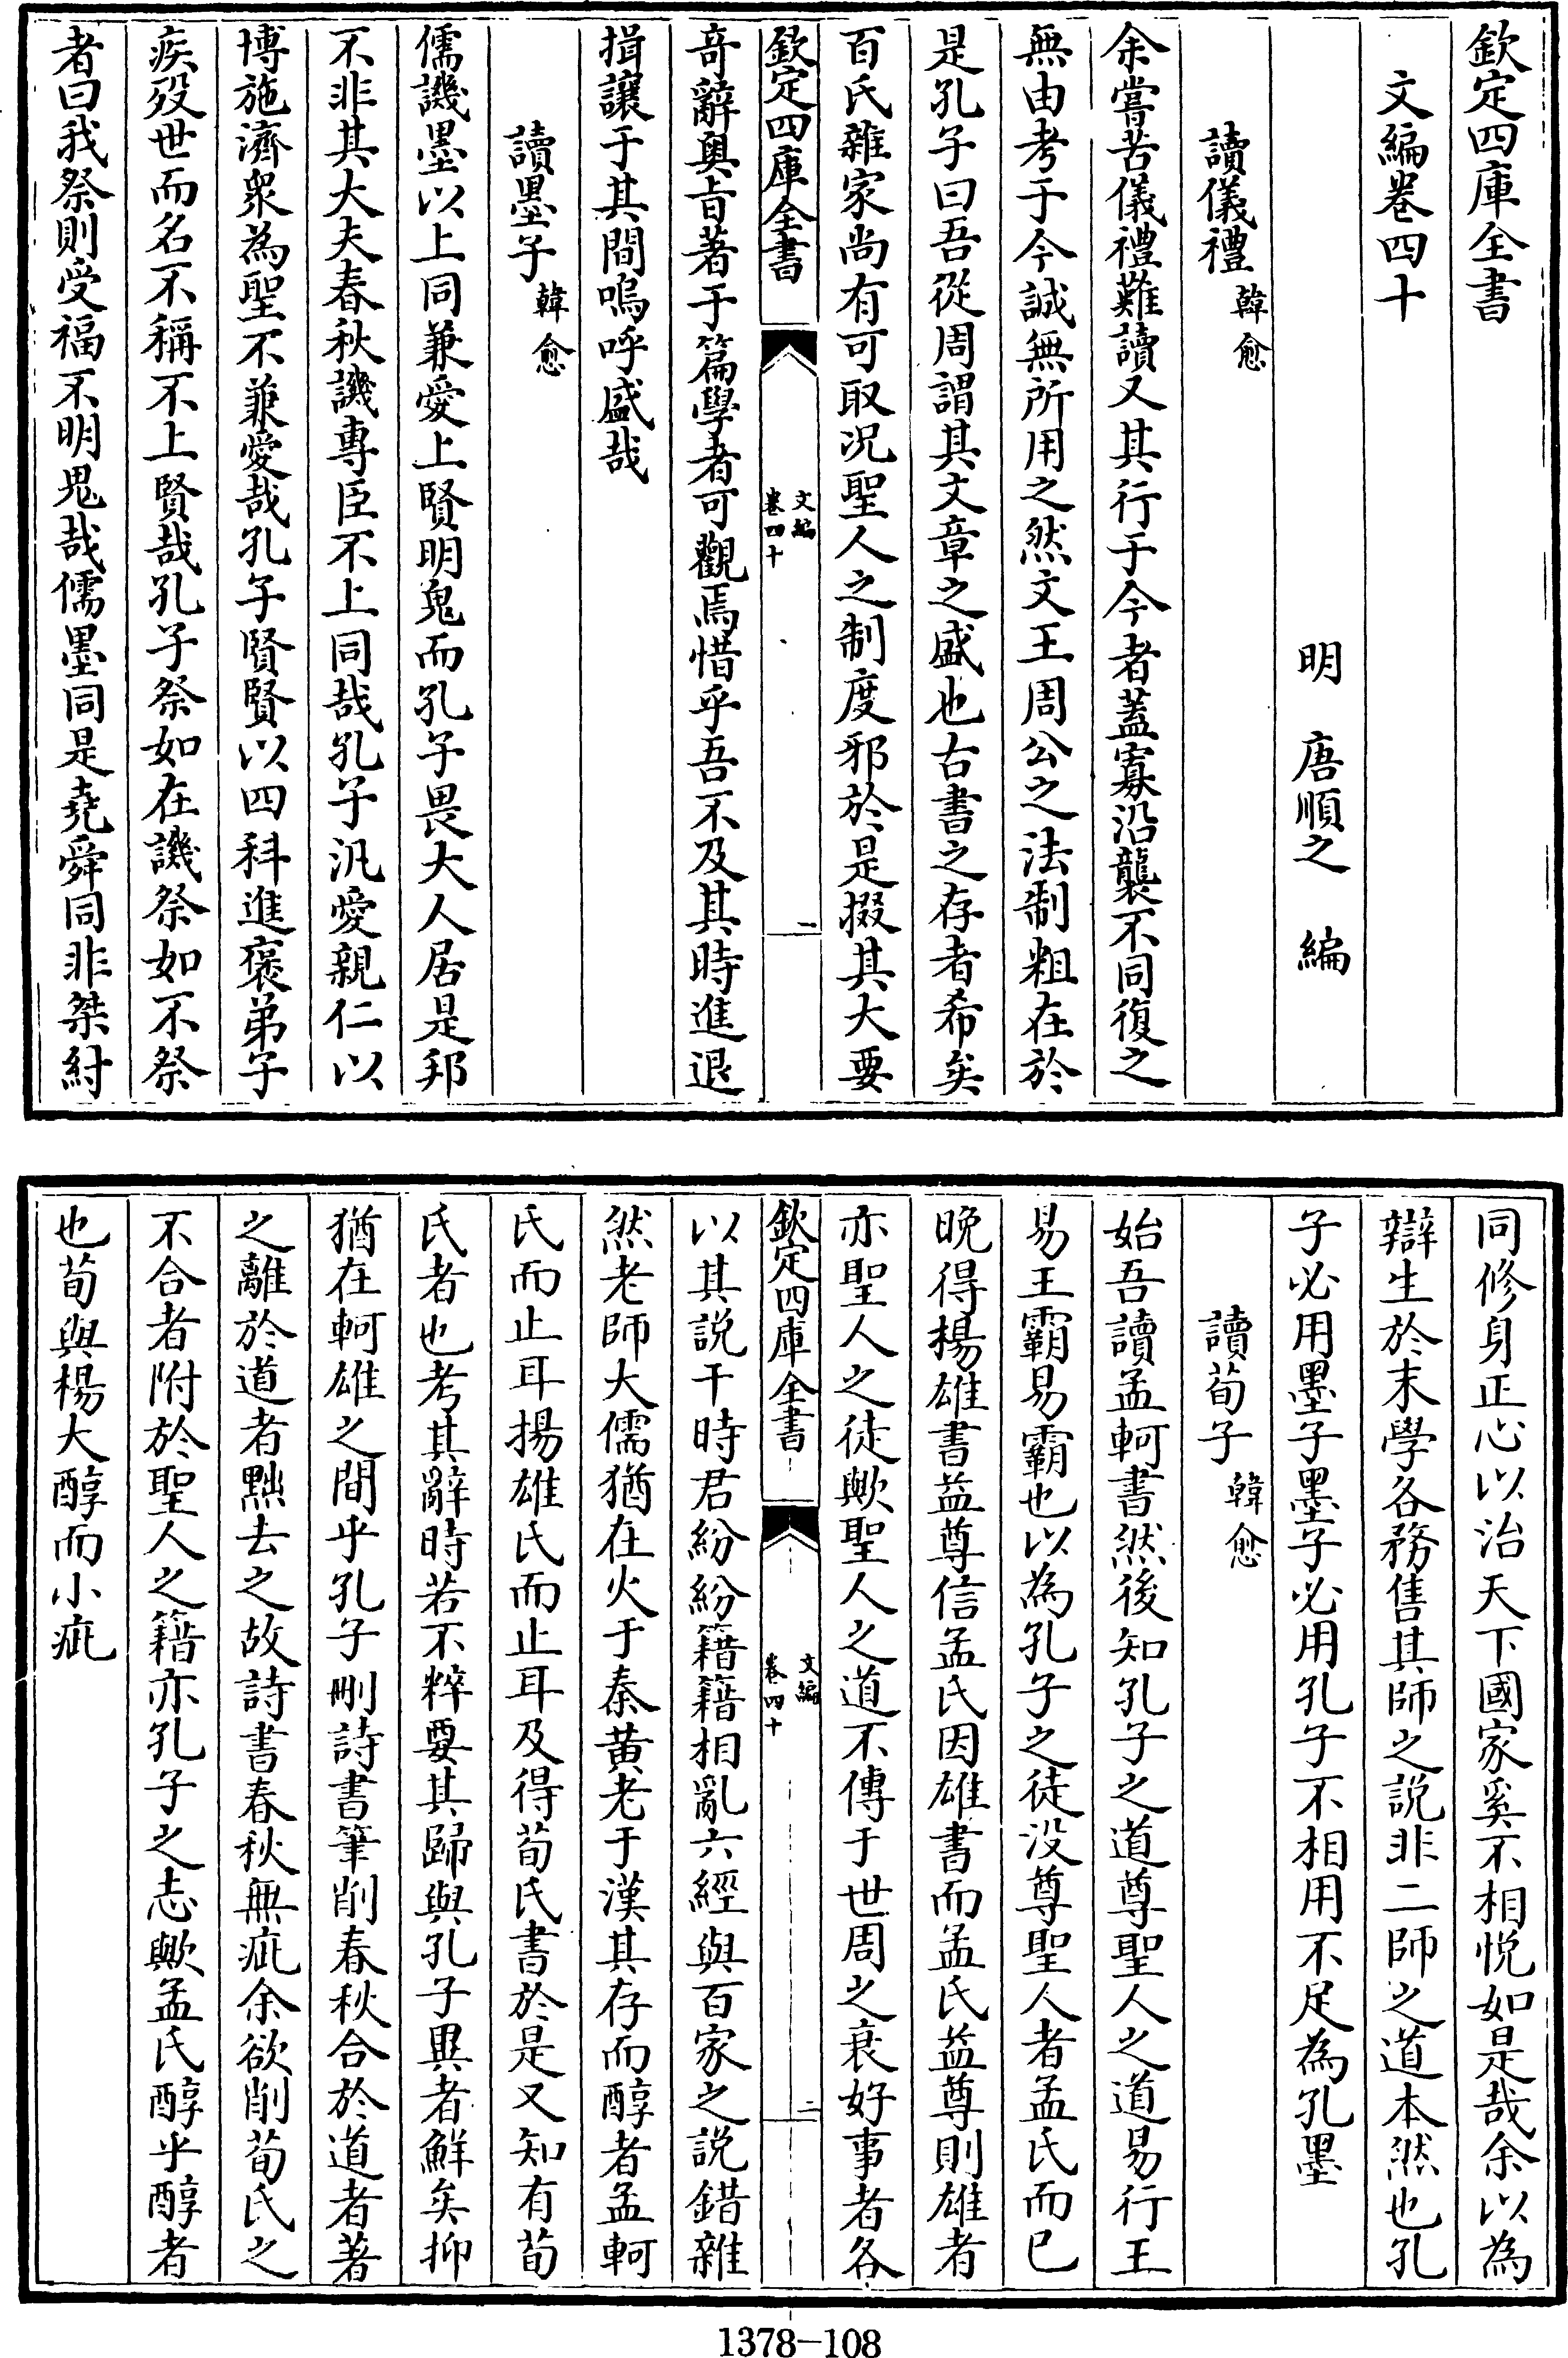 欽定四庫全書
文編卷四十
明 唐順之 編
讀儀禮 韓愈
余嘗苦儀禮難讀又其行于今者蓋寡沿襲不同復之
無由考于今誠無所用之然文王周公之法制粗在於
是孔子曰吾從周謂其文章之盛也古書之存者希矣
百氏雜家尚有可取况聖人之制度邪於是掇其大要
欽定四庫全書 文編 卷四十 一
奇辭奥㫖著于篇學者可觀焉惜乎吾不及其時進退
揖讓于其間嗚呼盛哉
讀墨子 韓愈
儒譏墨以上同兼愛上賢明鬼而孔子畏大人居是邦
不非其大夫春秋譏專臣不上同哉孔子汎愛親仁以
博施濟衆為聖不兼愛哉孔子賢賢以四科進褒弟子
疾殁世而名不稱不上賢哉孔子祭如在譏祭如不祭
者曰我祭則受福不明鬼哉儒墨同是堯舜同非桀紂
同修身正心以治天下國家奚不相悦如是哉余以為
辯生於末學各務售其師之説非二師之道本然也孔
子必用墨子墨子必用孔子不相用不足為孔墨
讀荀子 韓愈
始吾讀孟軻書然後知孔子之道尊聖人之道易行王
易王霸易霸也以為孔子之徒没尊聖人者孟氏而已
晚得楊雄書益尊信孟氏因雄書而孟氏益尊則雄者
亦聖人之徒歟聖人之道不傳于世周之衰好事者各
欽定四庫全書 文編 卷四十 二
以其説干時君紛紛籍籍相亂六經與百家之説錯雜
然老師大儒猶在火于秦黄老于漢其存而醇者孟軻
氏而止耳揚雄氏而止耳及得荀氏書於是又知有荀
氏者也考其辭時若不粹要其歸與孔子異者鮮矣抑
猶在軻雄之間乎孔子刪詩書筆削春秋合於道者著
之離於道者黜去之故詩書春秋無疵余欲削荀氏之
不合者附於聖人之籍亦孔子之志歟孟氏醇乎醇者
也荀與楊大醇而小疵
1378-108